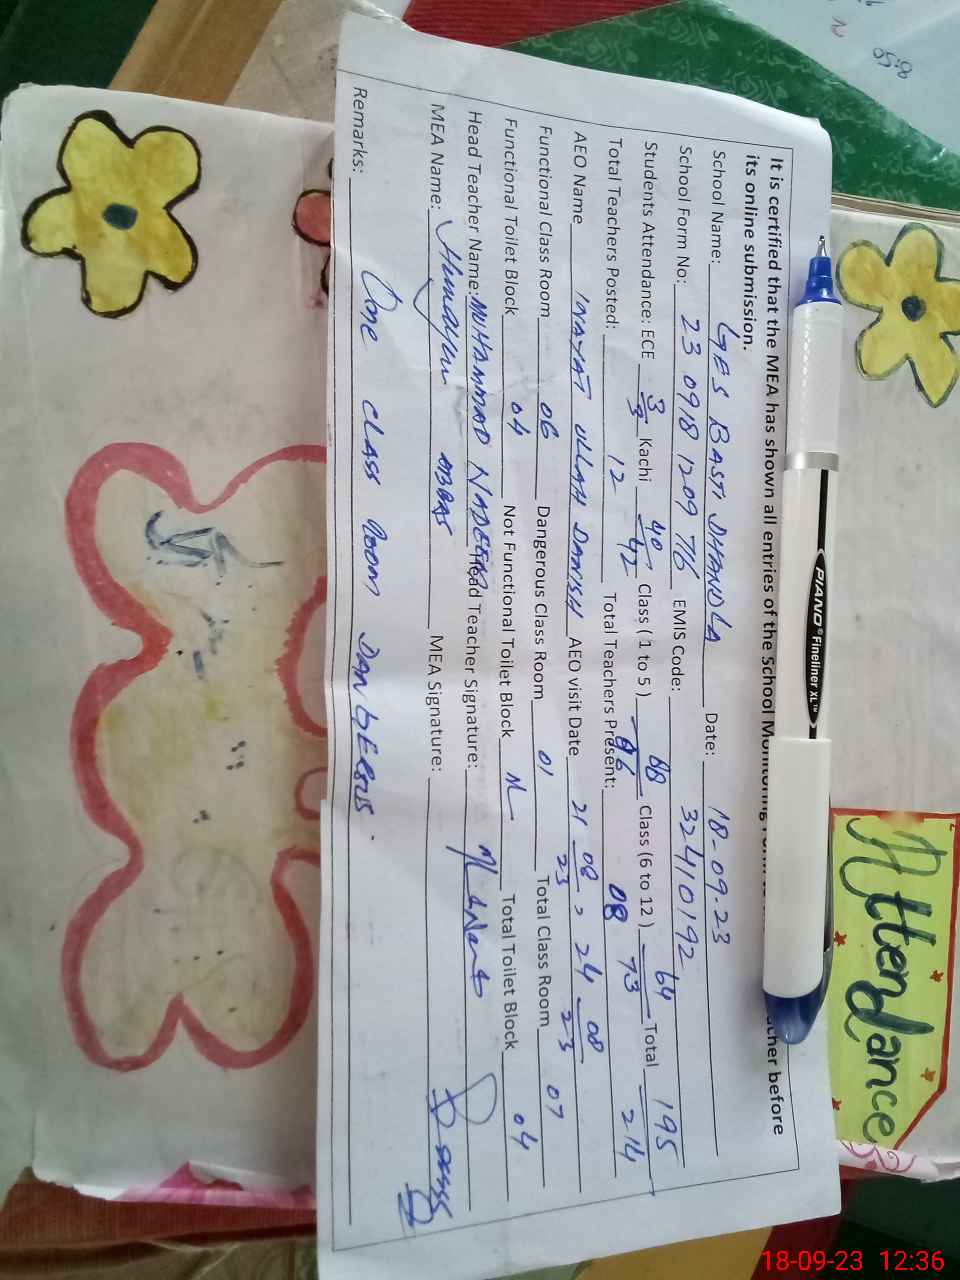 It is certified that the MEA has shown all entries of the School Monitoring Form to
acher before
its online submission.
School Name: GES BASTI DHANDLA Date: 18-09-23
School Form No: 23 0918 1209 76 EMIS Code: 32410192
Students Attendance: ECE 3/3 Kachi 40/42 Class (1 to 5) 88/96 Class (6 to 12) 64/73 Total 195/214
Total Teachers Posted: 12 Total Teachers Present: 08
AEO Name INAYAT ULLAH DANISH AEO visit Date 21-08-23, 24-08-23
Functional Class Room 06 Dangerous Class Room 01 Total Class Room 07
Functional Toilet Block 04 Not Functional Toilet Block Total Toilet Block 04
Head Teacher Name: MUHAMMAD NADEEM Head Teacher Signature:
MEA Name: Humayun ABBAS MEA Signature:
Remarks: One CLASS ROOM DANGERUS.
PIANO® Fineliner XL™
Attendance
8:50
18-09-23 12:36